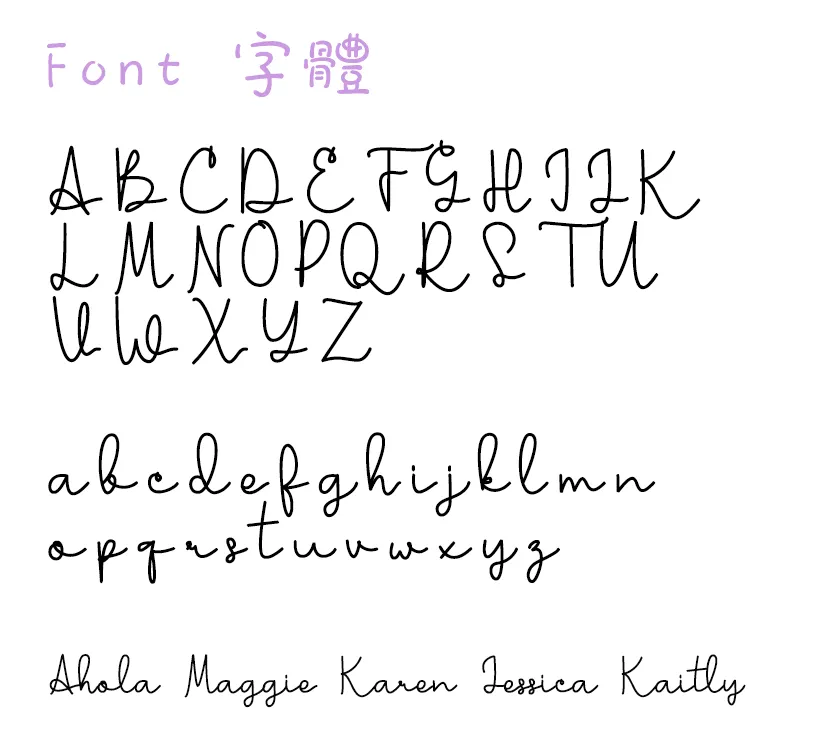 Font 字體
ABCDEFGHIJK
LMNOPQRSTU
VWXYZ
abcdefghijklmn
opqrstuvwxyz
Ahola Maggie Karen Jessica Kaitly